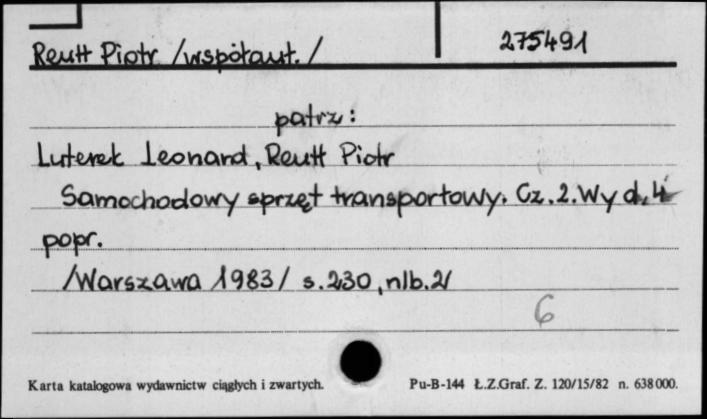 Reutt Piotr /współaut./ 275491
patrz:
Luterek Leonard, Reutt Piotr
Samochodowy sprzęt transportowy. Cz.2. Wyd. 4
popr.
/Warszawa 1983/ s.230, nlb.2/
6
Karta katalogowa wydawnictw ciągłych i zwartych. Pu-B-144 Ł.Z.Graf. Z. 120/15/82 n. 638000.